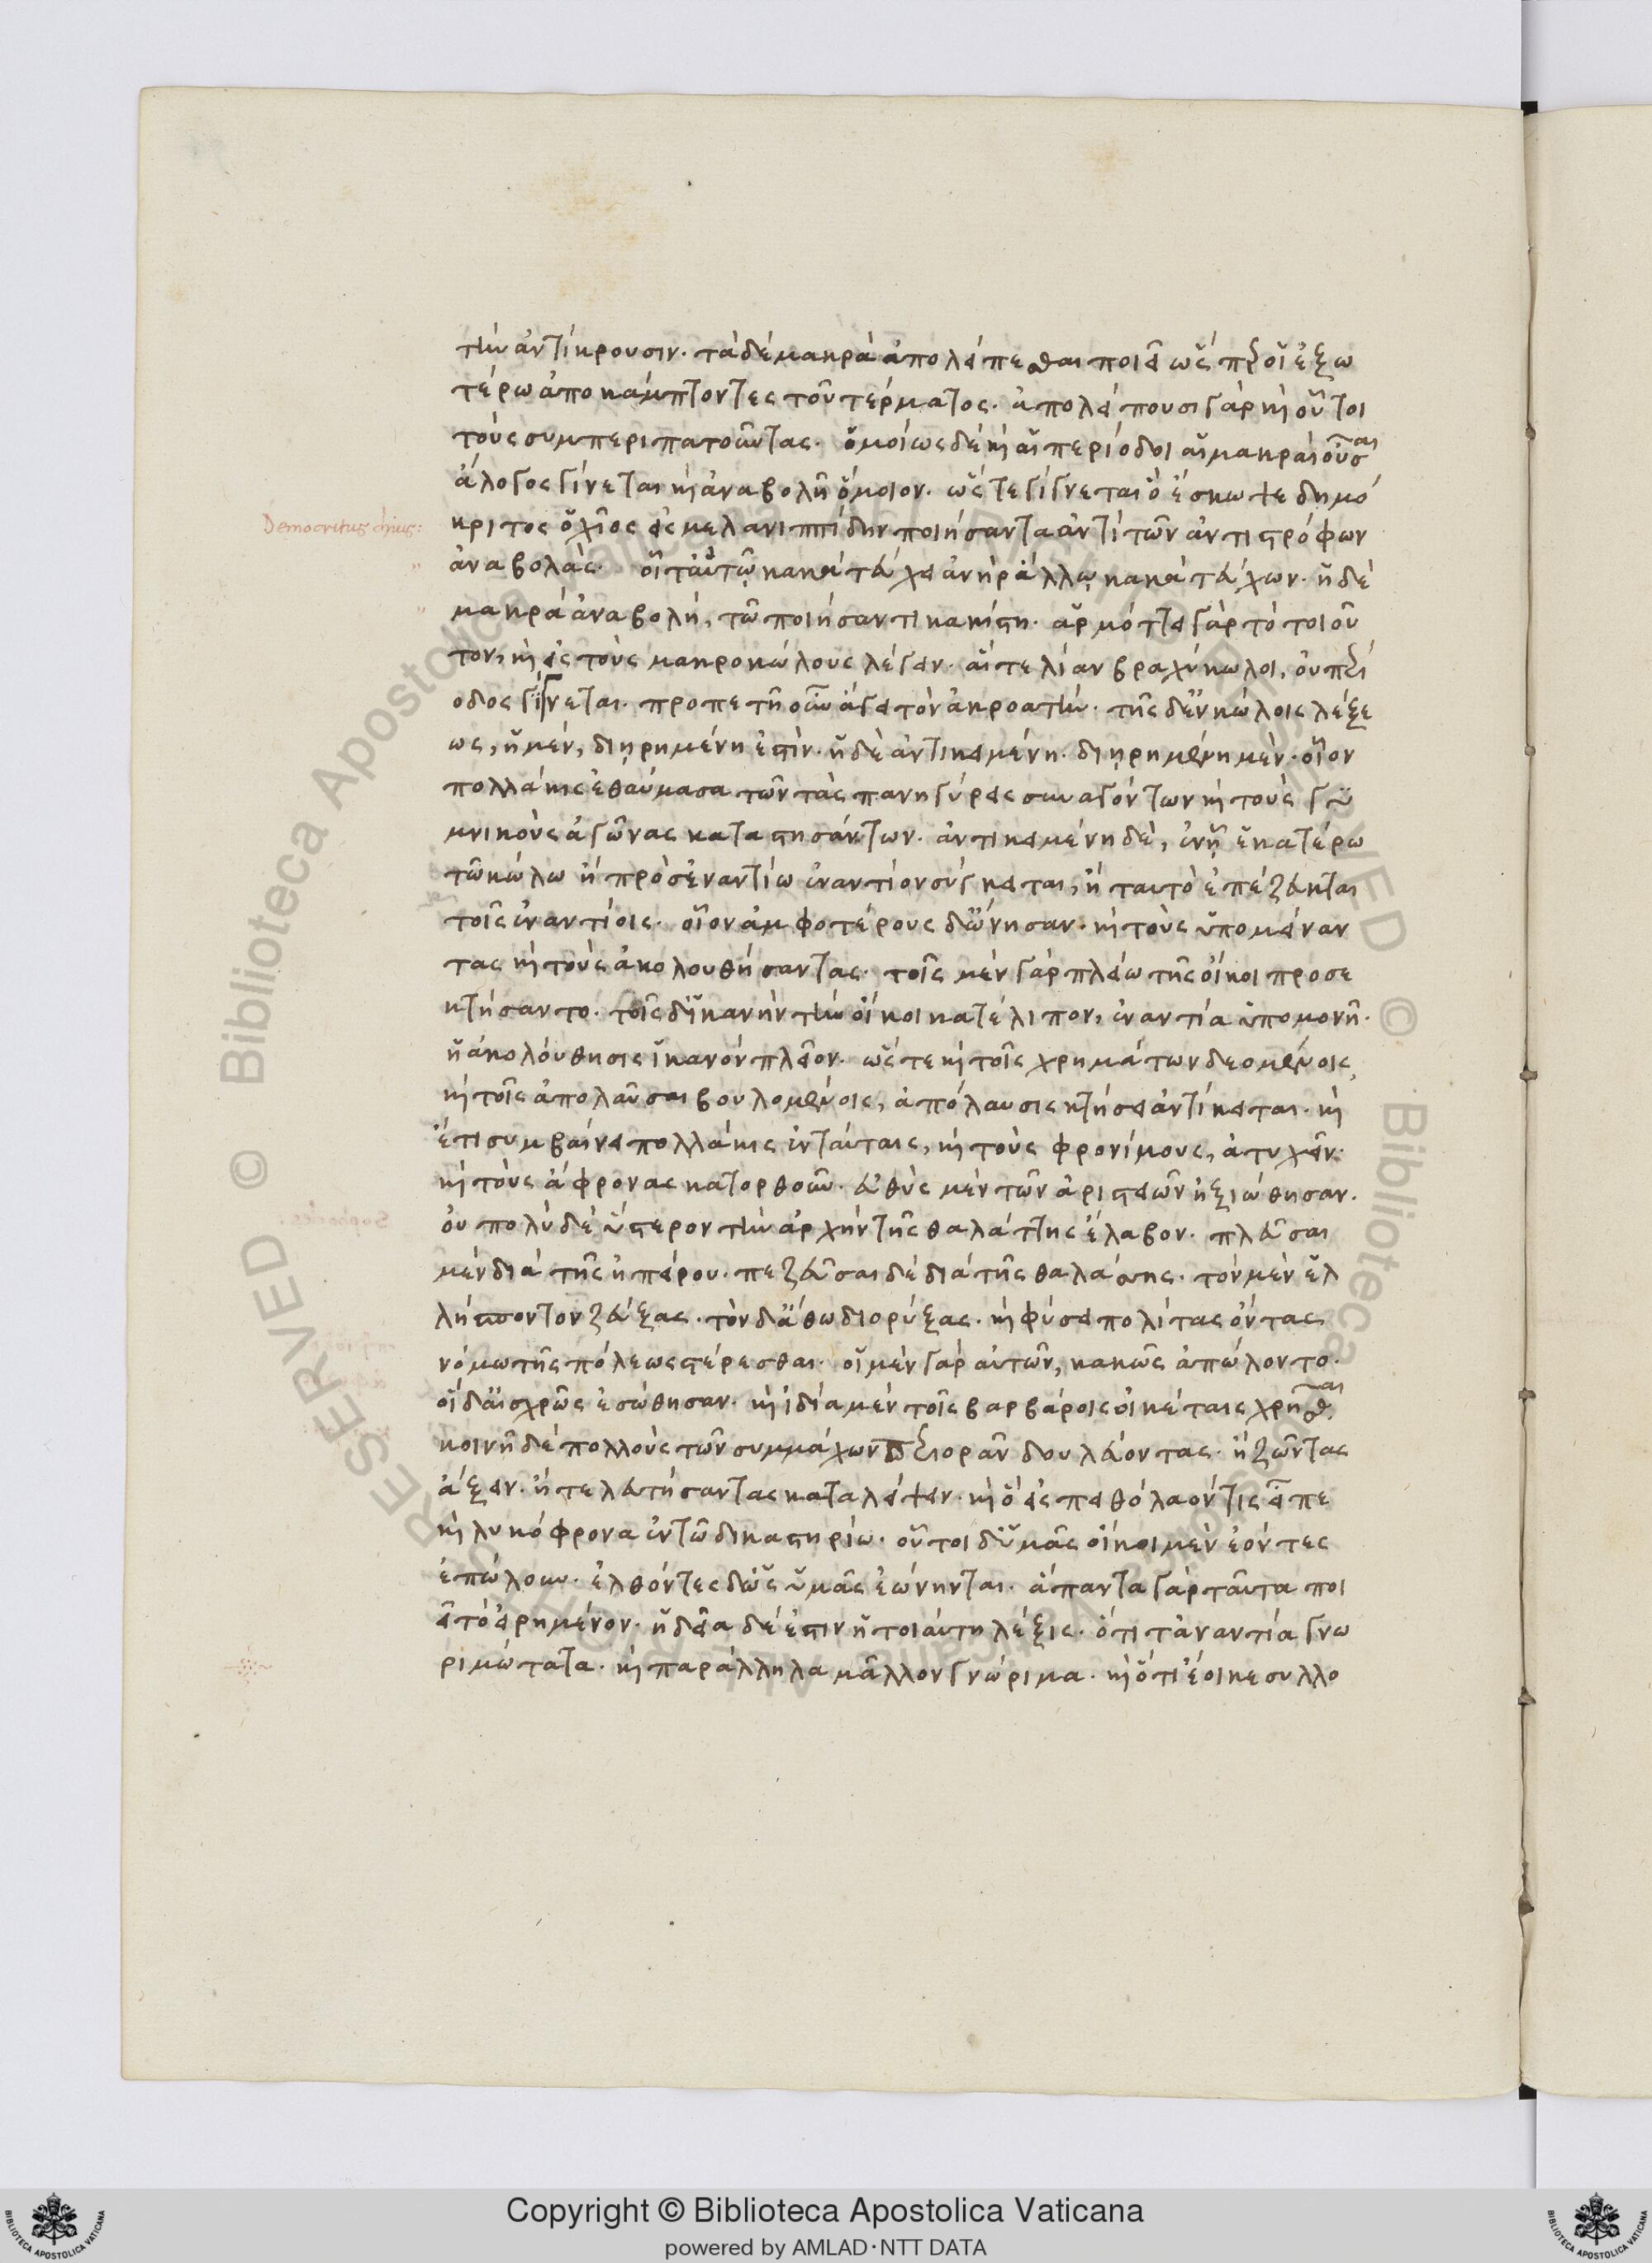 τὴν ἀντίκρουσιν. τὰ δὲ μακρὰ ἀπολείπεσθαι ποιεῖ ὥσπερ οἱ ἐξω
τέρω ἀποκάμπτοντες τοῦ τέρματος. ἀπολείπουσι γὰρ καὶ οὗτοι
τοὺς συμπεριπατοῦντας. ὁμοίως δὲ καὶ αἱ περίοδοι αἱ μακραὶ οὖσαι
ἄλογος γίνεται καὶ ἀναβολῇ ὅμοιον. ὥστε γίγνεται ὃ ἔσκωψε δημό
Democritus chius:
κριτος ὁ χῖος εἰς μελανιππίδην ποιήσαντα ἀντὶ τῶν ἀντιστρόφων
ἀναβολάς. οἷ τ' αὐτῷ κακὰ τεύχει ἀνὴρ ἄλλῳ κακὰ τεύχων. ἡ δὲ
μακρὰ ἀναβολή, τῶ ποιήσαντι κακίστη. ἁρμόττει γὰρ τὸ τοιοῦ
τον, καὶ εἰς τοὺς μακροκώλους λέγειν. αἵ τε λίαν βραχύκωλοι, οὐ περί
οδος γίγνεται. προπετῆ οὖν ἄγει τὸν ἀκροατήν. τῆς δ' ἐν κώλοις λέξε
ως, ἡ μέν, διῃρημένη ἐστίν. ἡ δὲ ἀντικειμένη. διῃρημένη μὲν. οἷον
πολλάκις ἐθαύμασα τῶν τὰς πανηγύρεις συναγόντων καὶ τοὺς γυ
μνικοὺς ἀγῶνας καταστησάντων. ἀντικειμένη δὲ, ἐν ᾗ ἑκατέρω
τῶ κώλω ἢ πρὸς ἐναντίω ἐναντίον σύγκειται, ἢ ταυτὸ ἐπέζευκται
τοῖς ἐναντίοις. οἷον ἀμφοτέρους δ' ὤνησαν. καὶ τοὺς ὑπομείναν
τας καὶ τοὺς ἀκολουθήσαντας. τοῖς μὲν γὰρ πλείω τῆς οἴκοι προσε
κτήσαντο. τοῖς δ' ἱκανὴν τὴν οἴκοι κατέλιπον, ἐναντία ὑπομονῆ.
ἡ ἀκολούθησις ἱκανὸν πλεῖον. ὥστε καὶ τοῖς χρημάτων δεομένοις,
καὶ τοῖς ἀπολαῦσαι βουλομένοις, ἀπόλαυσις κτήσει ἀντίκειται. καὶ
ἔτι συμβαίνει πολλάκις ἐν ταύταις, καὶ τοὺς φρονίμους, ἀτυχεῖν.
καὶ τοὺς ἄφρονας κατορθοῦν. εὐθὺς μὲν τῶν ἀριστείων ἠξιώθησαν.
οὐ πολὺ δὲ ὕστερον τὴν ἀρχὴν τῆς θαλάττης ἔλαβον. πλεῦσαι
μὲν διὰ τῆς ἠπείρου. πεζεῦσαι δὲ διὰ τῆς θαλάσσης. τὸν μὲν ἑλ
λήσποντον ζεύξας. τὸν δ' ἄθω διορύξας. καὶ φύσει πολίτας ὄντας
νόμω τῆς πόλεως στέρεσθαι. οἱ μὲν γὰρ αὐτῶν, κακῶς ἀπώλοντο.
οἱ δ' αἰσχρῶς ἐσώθησαν. καὶ ἰδία μὲν τοῖς βαρβάροις οἰκέταις χρῆσθαι
κοινῆ δὲ πολλοὺς τῶν συμμάχων περιορᾶν δουλεύοντας. ἢ ζῶντας
ἄξειν. ἢ τελευτήσαντας καταλείψειν. καὶ ὃ εἰς πειθόλαον τὶς εἶπε
καὶ λυκόφρονα ἐν τῶ δικαστηρίω. οὗτοι δ' ὑμᾶς οἴκοι μὲν ἐόντες
ἐπώλουν. ἐλθόντες δ' ὡς ὑμᾶς ἐώνηνται. ἅπαντα γὰρ ταῦτα ποι
εῖ τὸ εἰρημένον. ἡδεῖα δὲ ἐστιν ἡ τοιάυτη λέξις. ὅτι τἀναντία γνω
ριμώτατα. καὶ παράλληλα μᾶλλον γνώριμα. καὶ ὅτι ἔοικε συλλο
Copyright © Biblioteca Apostolica Vaticana
powered by AMLAD·NTT DATA